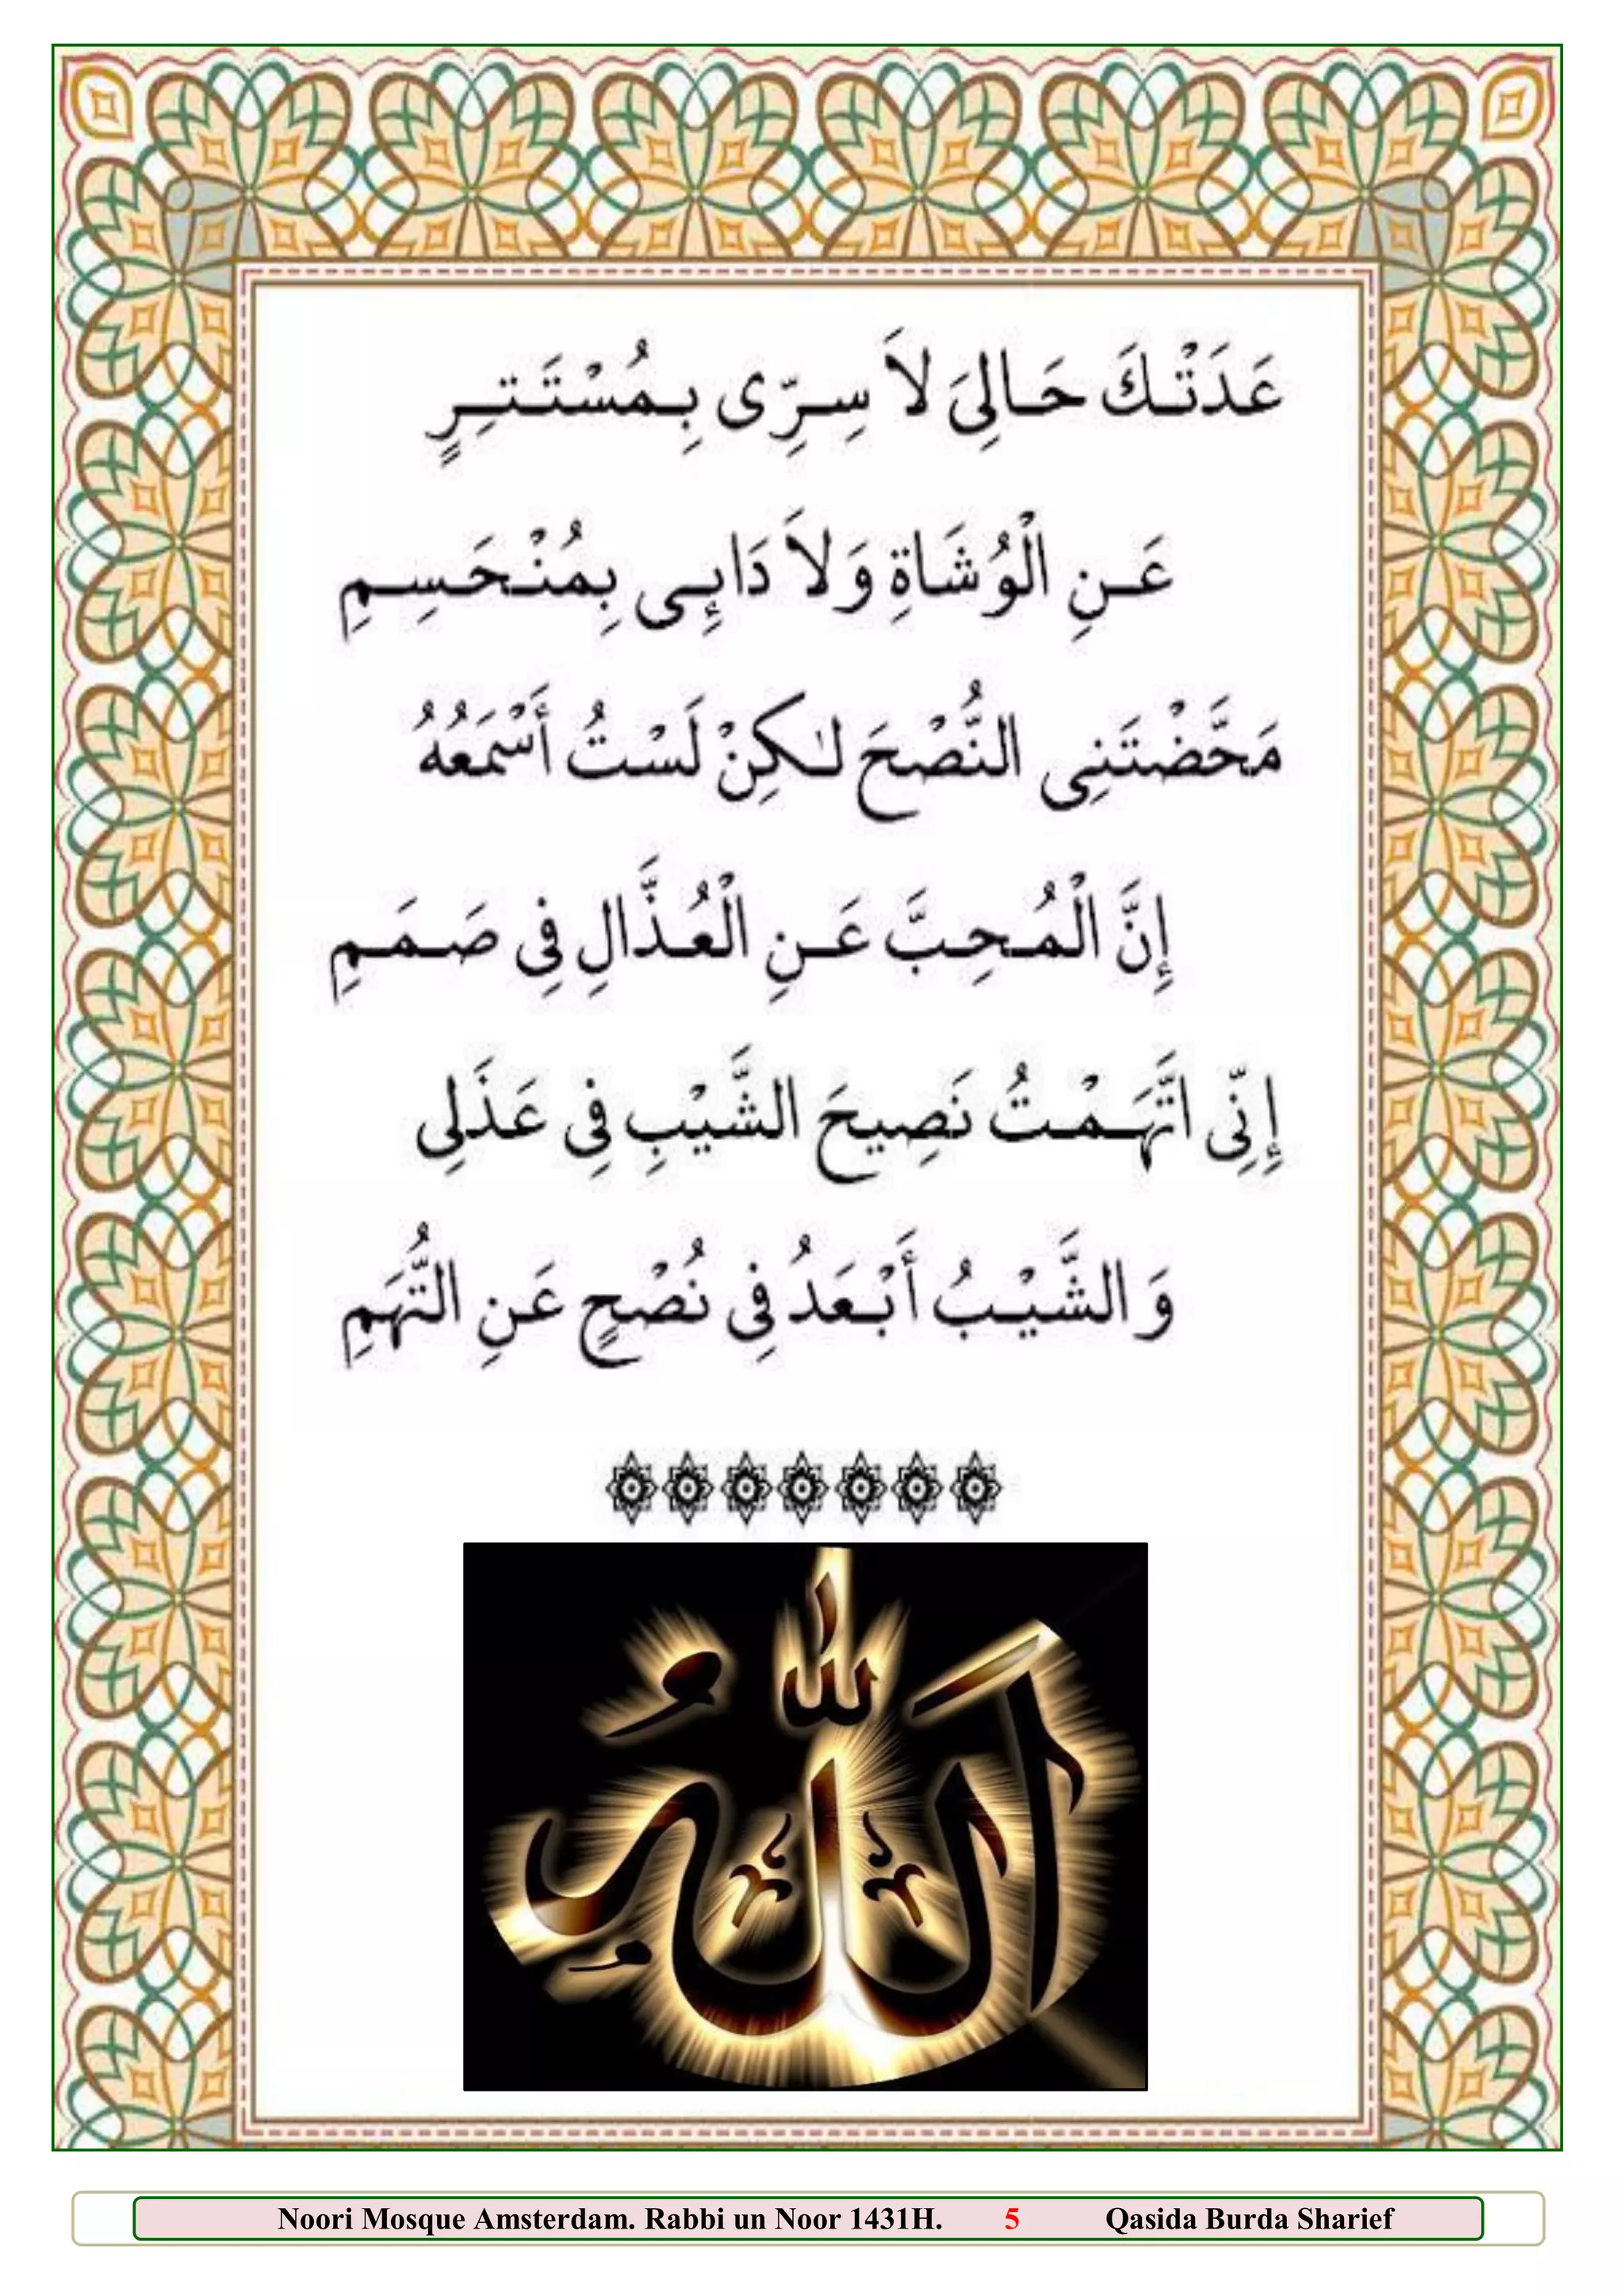 عَدَتْكَ حَالِىَ لاَ سِرِّى بِمُسْتَتِرٍ
عَنِ الْوُشَاةِ وَلاَ دَائِى بِمُنْحَسِمِ
مَحَّضْتَنِى النُّصْحَ لٰكِنْ لَسْتُ أَسْمَعُهُ
إِنَّ الْمُحِبَّ عَنِ الْعُذَّالِ فِى صَمَمِ
إِنِّى اتَّهَمْتُ نَصِيحَ الشَّيْبِ فِى عَذَلِى
وَالشَّيْبُ أَبْعَدُ فِى نُصْحٍ عَنِ التُّهَمِ
اَللّٰهُ
Noori Mosque Amsterdam. Rabbi un Noor 1431H. 5 Qasida Burda Sharief